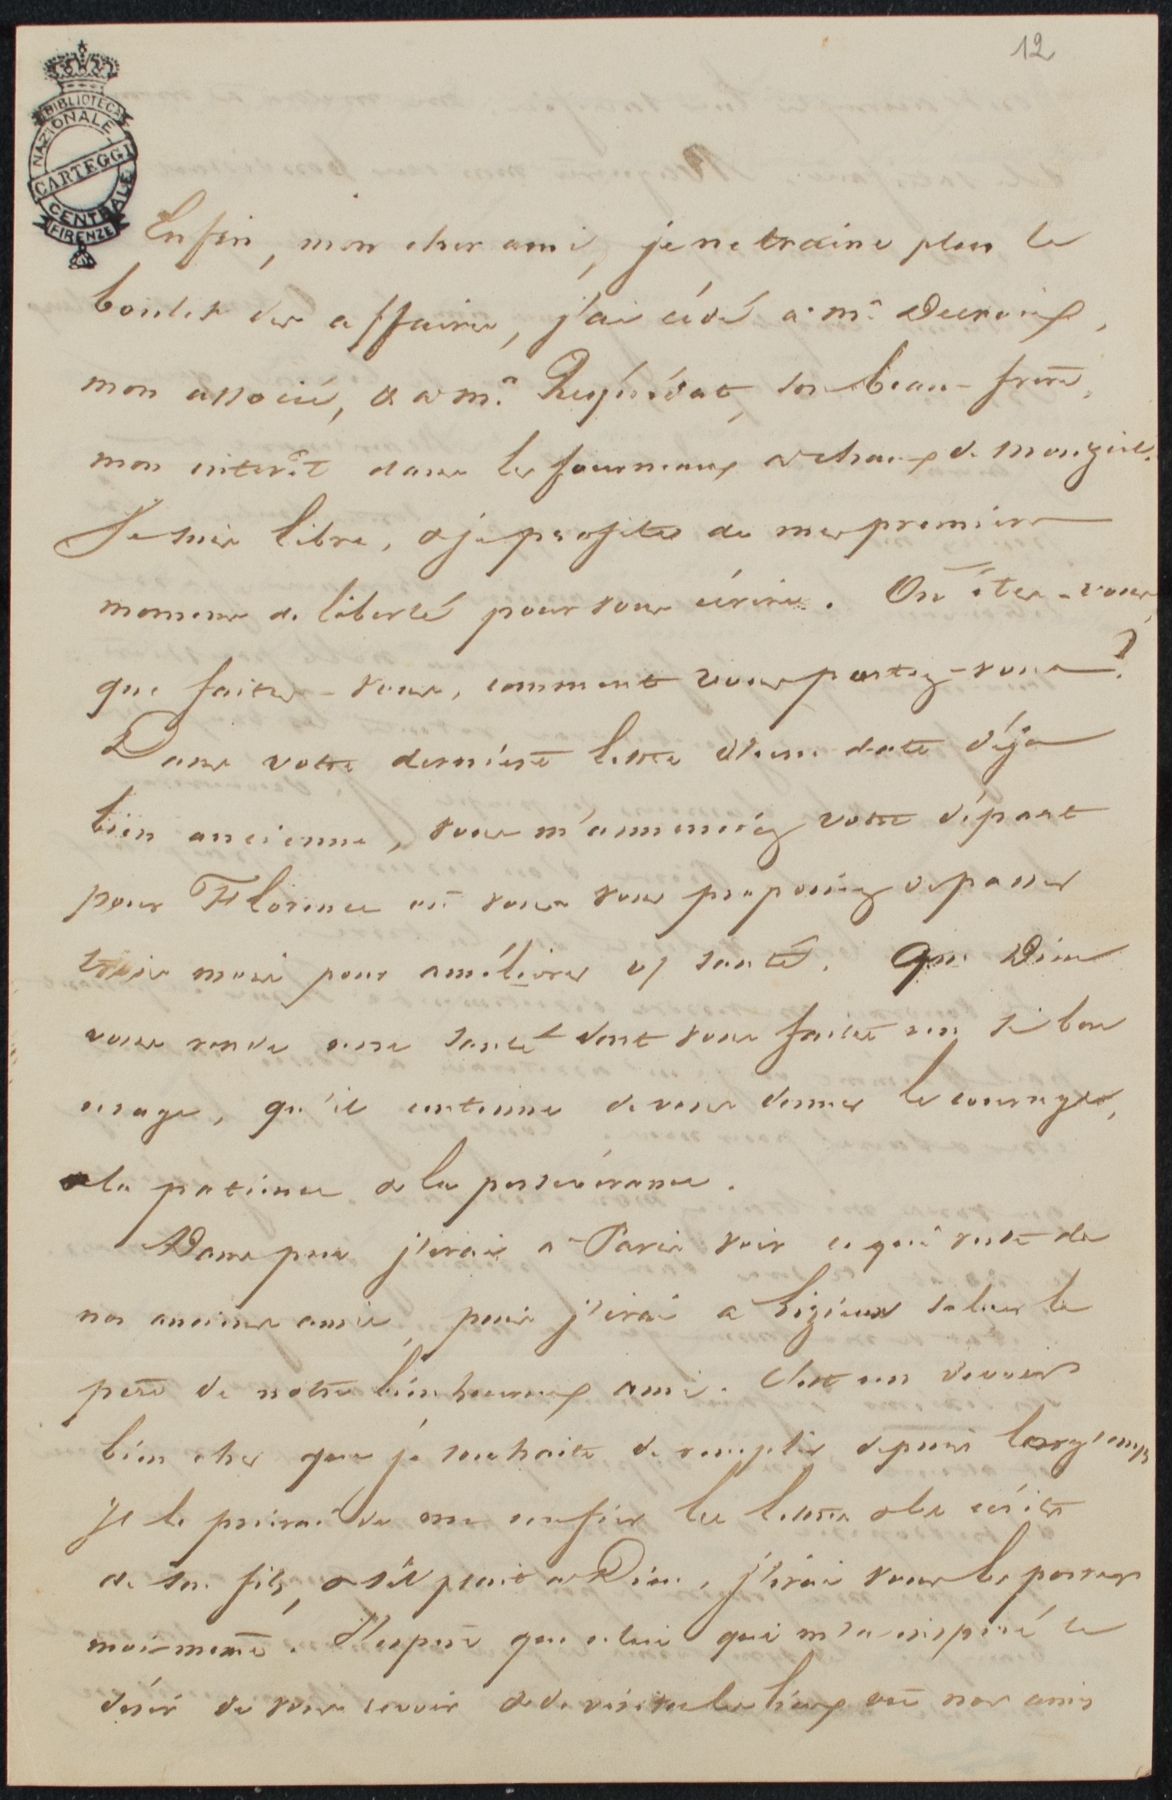 12
BIBLIOTECA
NAZIONALE
CARTEGGI
CENTRALE
FIRENZE
Enfin, mon cher ami, je ne traine plus le
boulet des affaires, j'ai cédé a mr Decroix,
mon associé, & a mr Respédat, son beau-frere,
mon interêt dans les fourneaux a chaux de Mongiel.
Je suis libre, & je profite de mes premiers
momens de liberté pour vous écrire. Ou êtes-vous,
que faites-vous, comment vous portez-vous?
Dans votre derniere lettre d'une date déja
bien ancienne, vous m'annonciez votre départ
pour Florence ou vous vous proposiez de passer
trois mois pour améliorer vtre santé. Que Dieu
vous rende une santé dont vous faites un si bon
usage, qu'il continue de vous donner le courage,
la patience & la persévérance.
Dans peu j'irai a Paris voir ce qui reste de
nos anciens amis, puis j'irai a Lizieux saluer le
pere de notre bienheureux ami. C'est un devoir
bien cher que je souhaite de remplir depuis longtemps
Je le prierai de me confier les lettres & les écrits
de son fils, & s'il plait a Dieu, j'irai vous les porter
moi-meme. J'espere que celui qui m'a inspiré le
désir de vous revoir & de visiter les lieux ou nos amis